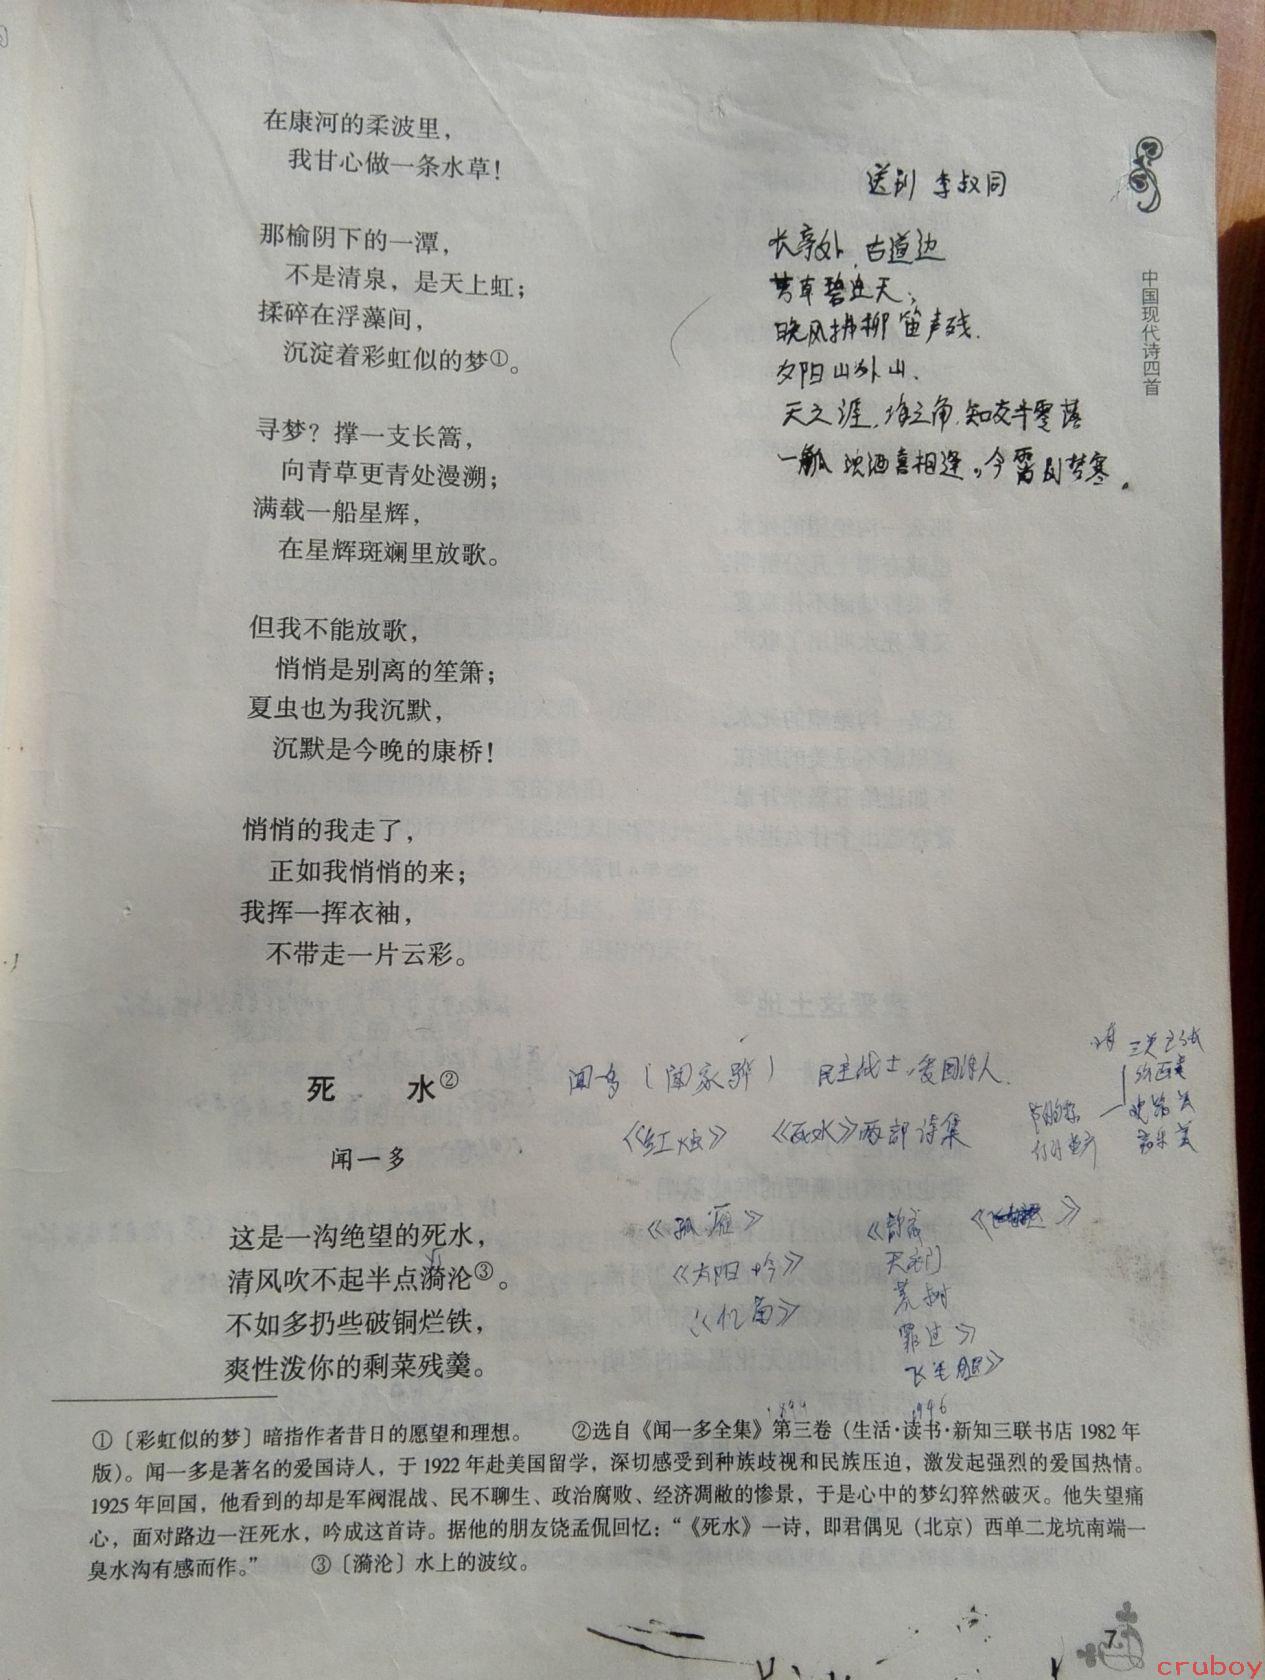 在康河的柔波里，
我甘心做一条水草！
那榆阴下的一潭，
不是清泉，是天上虹；
揉碎在浮藻间，
沉淀着彩虹似的梦①。
寻梦？撑一支长篙，
向青草更青处漫溯；
满载一船星辉，
在星辉斑斓里放歌。
但我不能放歌，
悄悄是别离的笙箫；
夏虫也为我沉默，
沉默是今晚的康桥！
悄悄的我走了，
正如我悄悄的来；
我挥一挥衣袖，
不带走一片云彩。
送别 李叔同
长亭外，古道边
芳草碧连天，
晚风拂柳笛声残．
夕阳山外山．
天之涯．海之角．知交半零落
一瓢浊酒喜相逢，今宵别梦寒。
中国现代诗四首
死 水②
闻一多
闻一多（闻家骅） 民主战士，爱国诗人．
《红烛》 《死水》两部诗集
三美主张
绘画美
建筑美
音乐美
《孤雁》
《太阳吟》
《忆菊》
天安门
荒村
罪过》
飞毛腿》
这是一沟绝望的死水，
清风吹不起半点漪沦③。
不如多扔些破铜烂铁，
爽性泼你的剩菜残羹。
1899 1946
①〔彩虹似的梦〕暗指作者昔日的愿望和理想。 ②选自《闻一多全集》第三卷（生活·读书·新知三联书店 1982 年
版）。闻一多是著名的爱国诗人，于 1922 年赴美国留学，深切感受到种族歧视和民族压迫，激发起强烈的爱国热情。
1925 年回国，他看到的却是军阀混战、民不聊生、政治腐败、经济凋敝的惨景，于是心中的梦幻猝然破灭。他失望痛
心，面对路边一汪死水，吟成这首诗。据他的朋友饶孟侃回忆：“《死水》一诗，即君偶见（北京）西单二龙坑南端一
臭水沟有感而作。” ③〔漪沦〕水上的波纹。
7
cruboy